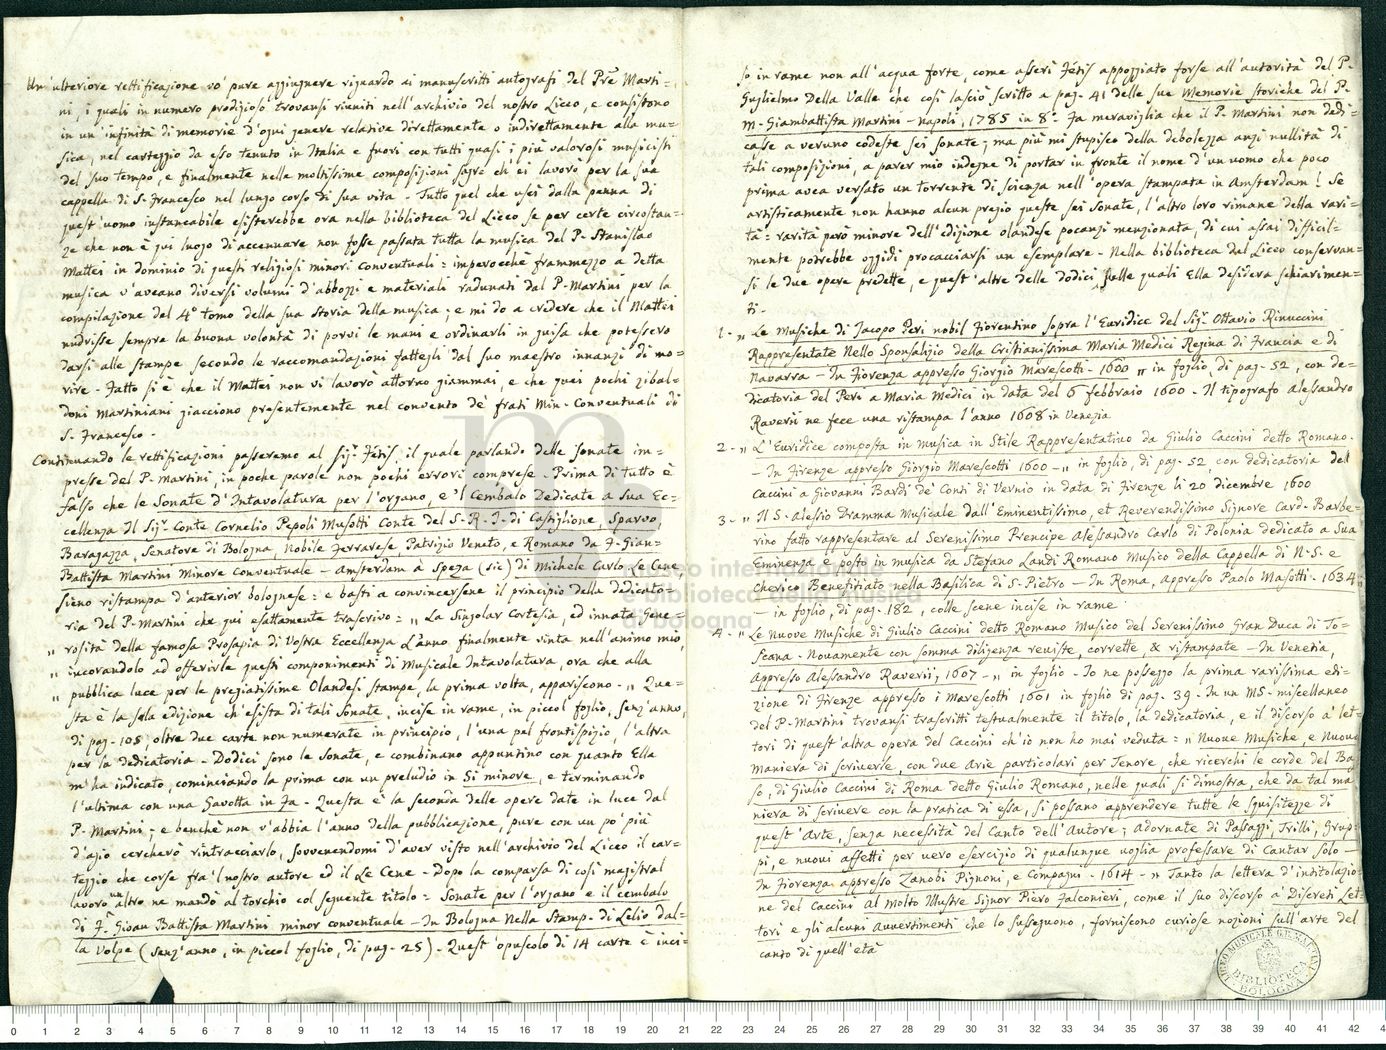 Un'ulteriore rettificazione vo' pure aggiugnere riguardo ai manuscritti autografi del Pre Marti-
ni, i quali in numero prodigioso trovansi riuniti nell'archivio del nostro Liceo, e consistono
in un'infinità di memorie d'ogni genere relative direttamente o indirettamente alla mu-
sica, nel carteggio da esso tenuto in Italia e fuori con tutti quasi i più valorosi musicisti
del suo tempo, e finalmente nella moltissime composizioni sagre ch'ei lavorò per la sua
cappella di S. Francesco nel lungo corso di sua vita - Tutto quel che uscì dalla penna di
quest'uomo instancabile esisterebbe ora nella biblioteca del Liceo se per certe circostan-
ze che non è qui luogo di accennare non fosse passata tutta la musica del P. Stanislao
Mattei in dominio di questi religiosi minori conventuali = imperocchè frammezzo a detta
musica v'aveano diversi volumi d'abbozzi e materiali radunati dal P. Martini per la
compilazione del 4º tomo della sua Storia della musica; e mi do a credere che il Mattei
nudrisse sempre la buona volontà di porvi le mani e ordinarli in guisa che potessero
darsi alle stampe secondo le raccomandazioni fattegli dal suo maestro innanzi di mo-
rire - Fatto si è che il Mattei non vi lavorò attorno giammai, e che quei pochi zibal-
doni Martiniani giacciono presentemente nel convento de' frati Min. Conventuali di
S. Francesco -
Continuando le rettificazioni passeremo al Sigr. Fétis, il quale parlando delle sonate im-
presse del P. Martini, in poche parole non pochi errori comprese - Prima di tutto è
falso che le Sonate d'Intavolatura per l'organo, e 'l Cembalo Dedicate a Sua Ec-
cellenza Il Sigr. Conte Cornelio Pepoli Musotti Conte del S. R. I. di Castiglione, Sparvo,
Baragazza, Senatore di Bologna, Nobile Ferrarese, Patrizio Veneto, e Romano da F. Gian-
Battista Martini Minore Conventuale - Amsterdam à Speza (sic) di Michele Carlo Le Cene,
sieno ristampa d'anterior bolognese = e basti a convincersene il principio della dedicato-
ria del P. Martini che qui esattamente trascrivo = „ La Singolar Cortesia, ed innata Gene-
„ rosità della famosa Prosapia di Vostra Eccellenza l'anno finalmente vinta nell'animo mio,
„ incorandolo ad offerirle questi componimenti di Musicale Intavolatura, ora che alla
„ pubblica luce per le pregiatissime Olandesi stampe, la prima volta, appariscono - „ Que-
sta è la sola edizione ch'esista di tali Sonate, incise in rame, in piccol foglio, senz'anno,
di pag. 105, oltre due carte non numerate in principio, l'una pel frontispizio, l'altra
per la dedicatoria - Dodici sono le Sonate, e combinano appuntino con quanto Ella
m'ha indicato, cominciando la prima con un preludio in Si minore, e terminando
l'ultima con una Gavotta in Fa - Questa è la seconda delle opere date in luce dal
P. Martini; e benchè non v'abbia l'anno della pubblicazione, pure con un po' più
d'agio cercherò rintracciarlo, sovvenendomi d'aver visto nell'archivio del Liceo il car-
teggio che corse fra 'l nostro autore ed il Le Cene - Dopo la comparsa di così magistral
lavoro un altro ne mandò al torchio col seguente titolo = Sonate per l'organo e il cembalo
di F. Gioan Battista Martini minor conventuale - In Bologna Nella Stamp. di Lelio Dal-
la Volpe (senz'anno, in piccol foglio, di pag. 25) - Quest'opuscolo di 14 carte è inci-
so in rame non all'acqua forte, come asserì Fétis appoggiato forse all'autorità del P.
Guglielmo Della Valle che così lasciò scritto a pag. 41 delle sue Memorie storiche del P.
M. Giambattista Martini - Napoli, 1785 in 8º. Fa meraviglia che il P. Martini non dedi-
casse a veruno codeste sei sonate; ma più mi stupisco della debolezza anzi nullità di
tali composizioni, a parer mio indegne di portar in fronte il nome d'un uomo che poco
prima avea versato un torrente di scienza nell'opera stampata in Amsterdam! Se
artisticamente non hanno alcun pregio queste sei Sonate, l'altro loro rimane della rari-
tà = rarità però minore dell'edizione olandese pocanzi menzionata, di cui assai difficil-
mente potrebbe oggidì procacciarsi un esemplare - Nella biblioteca del Liceo conservan-
si le due opere predette, e quest'altre delle dodici sulle quali Ella desidera schiarimen-
ti.
1. „ Le Musiche di Jacopo Peri nobil Fiorentino sopra l'Euridice del Sigr. Ottavio Rinuccini
Rappresentate Nello Sponsalizio della Cristianissima Maria Medici Regina di Francia e di
Navarra - In Fiorenza appresso Giorgio Marescotti - 1600 „ in foglio, di pag. 52, con de-
dicatoria del Peri a Maria Medici in data del 6 febbraio 1600 - Il tipografo Alessandro
Raverii ne fece una ristampa l'anno 1608 in Venezia
2. „ L'Euridice composta in musica in Stile Rappresentativo da Giulio Caccini detto Romano.
- In Firenze appresso Giorgio Marescotti 1600 - „ in foglio, di pag. 52, con dedicatoria del
Caccini a Giovanni Bardi de' Conti di Vernio in data di Firenze li 20 dicembre 1600
3. „ Il S. Alessio Dramma Musicale dall'Eminentissimo, et Reverendissimo Signore Card. Barbe-
rino fatto rappresentare al Serenissimo Prencipe Alessandro Carlo di Polonia dedicato a Sua
Eminenza e posto in musica da Stefano Landi Romano Musico della Cappella di N. S. e
Cherico Benefitiato nella Basilica di S. Pietro - In Roma, appresso Paolo Masotti - 1634 „
- in foglio, di pag. 182, colle scene incise in rame
4. „ Le Nuove Musiche di Giulio Caccini detto Romano Musico del Serenissimo Gran Duca di To-
scana - Novamente con somma diligenza reviste, corrette & ristampate - In Venetia,
appresso Alessandro Raverii, 1607 - „ in foglio - Io ne posseggo la prima rarissima edi-
zione di Firenze appresso i Marescotti 1601 in foglio di pag. 39 - In un MS. miscellaneo
del P. Martini trovansi trascritti testualmente il titolo, la dedicatoria, e il discorso a' let-
tori di quest'altra opera del Caccini ch'io non ho mai veduta = „ Nuove Musiche, e Nuova
Maniera di scriverle, con due Arie particolari per Tenore, che ricerchi le corde del Bas-
so, di Giulio Caccini di Roma detto Giulio Romano, nelle quali si dimostra, che da tal ma-
niera di scrivere con la pratica di essa, si possano apprendere tutte le squisitezze di
quest'Arte, senza necessità del Canto dell'Autore; Adornate di Passaggi, Trilli, Grup-
pi, e nuovi affetti per vero esercizio di qualunque voglia professare di Cantar solo -
In Fiorenza appresso Zanobi Pignoni, e Compagni - 1614 - „ Tanto la lettera d'intitolazio-
ne del Caccini Al Molto Illustre Signor Piero Falconieri, come il suo discorso a' Discreti Let-
tori e gli alcuni Avvertimenti che lo susseguono, forniscono curiose nozioni sull'arte del
canto di quell'età
LICEO MUSICALE G.B. MARTINI
BIBLIOTECA
BOLOGNA
museo internazionale
e biblioteca della musica
di bologna
0 1 2 3 4 5 6 7 8 9 10 11 12 13 14 15 16 17 18 19 20 21 22 23 24 25 26 27 28 29 30 31 32 33 34 35 36 37 38 39 40 41 42 4